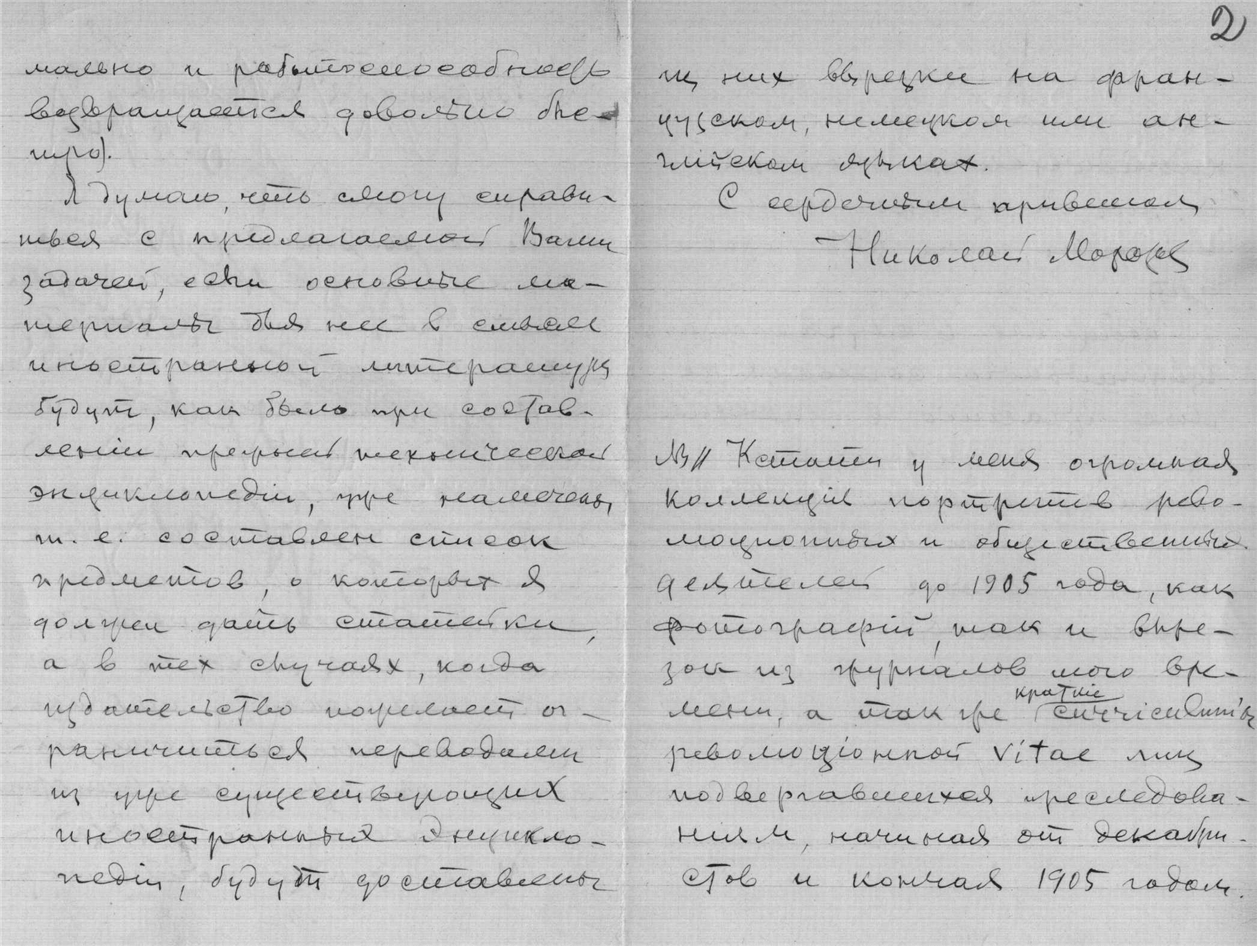 2
мально и работоспособность
возвращается довольно бы-
стро).
Я думаю, что смогу справи-
ться с предлагаемой Вами
задачей, если основные ма-
териалы для нее в смысле
иностранной литературы
будут, как было при состав-
лении прежней технической
энциклопедіи, уже намечены,
т. е. составлен список
предметов, о которых я
должен дать статейки,
а в тех случаях, когда
издательство пожелает ог-
раничиться переводами
из уже существующих
иностранных Энцикло-
педій, будут доставлены
из них вырезки на фран-
цузском, немецком или ан-
глійском языках.
С сердечным приветом
Николай Морозов
NB// Кстати у меня огромная
коллекція портретов рево-
люціонных и общественных
деятелей до 1905 года, как
фотографій, так и выре-
зок из журналов того вре-
мени, а так же краткіе
революціонной vitae лиц
подвергавшихся преследова-
ниям, начиная от декабри-
стов и кончая 1905 годом.